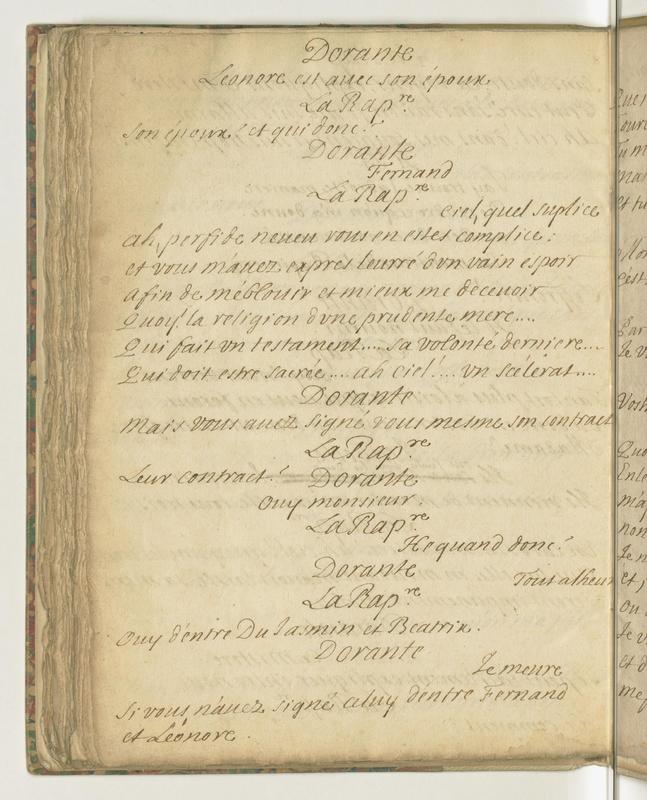 Dorante
Leonore est auec son époux
La Rap.re
Son époux! et qui donc!
Dorante
Fernand
La Rap.re
Ciel, quel suplice
ah, perfide neueu vous en estes complice;
et vous m'auez exprés leurré d'vn vain espoir
afin de m'éblouir et mieux me deceuoir
Quoy! la religion d'vne prudente mere....
Qui fait vn testament.... sa volonté derniere...
Qui doit estre sacrée.... ah ciel!.... vn scélérat....
Dorante
Mais vous auez signé vous mesme son contract
La Rap.re
Leur contract!
Dorante
Ouy monsieur
La Rap.re
He quand donc!
Dorante
Tout alheur
La Rap.re
Ouy d'entre Du Iasmin et Beatrix.
Dorante
Ie meure
Si vous n'auez signé celuy d'entre Fernand
et Léonore.